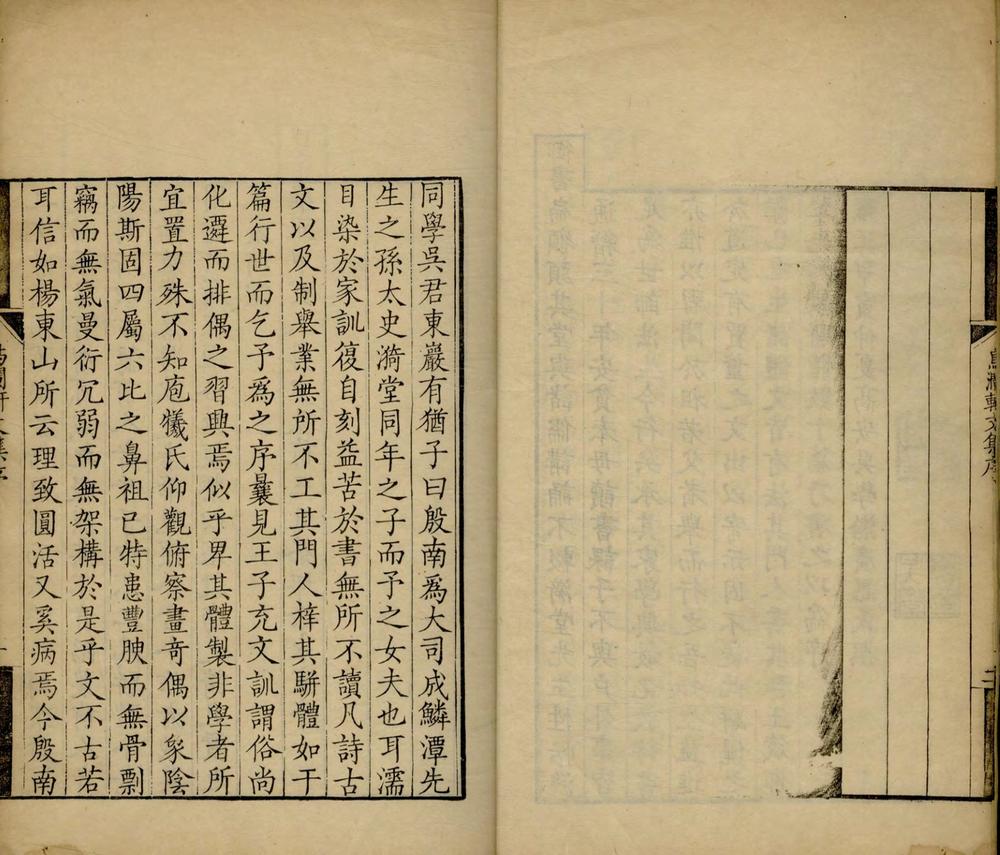 軒文集序
二
同學吳君東巖有猶子曰殷南爲大司成鱗潭先
生之孫太史漪堂同年之子而予之女夫也耳濡
目染於家訓復自刻益苦於書無所不讀凡詩古
文以及制舉業無所不工其門人梓其駢體如干
篇行世而乞予爲之序曩見王子充文訓謂俗尚
化遷而排偶之習興焉似乎卑其體製非學者所
宜置力殊不知庖犧氏仰觀俯察畫奇偶以象陰
陽斯固四屬六比之鼻祖已特患豐腴而無骨剽
竊而無氣曼衍冗弱而無架構於是乎文不古若
耳信如楊東山所云理致圓活又奚病焉今殷南